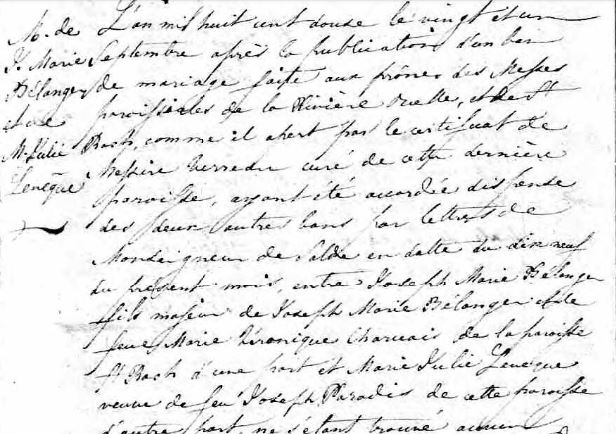 M. de
J. Marie
Bélanger
et de
M. Julie
Levêque
L'an mil huit cent douze le vingt et un
Septembre après la publication d'un ban
de mariage faite aux prônes des Messes
paroissiales de la Rivière Ouelle, et de St
Roch, comme il apert par le certificat de
Messire Verreau curé de cette dernière
paroisse, ayant été accordée dispense
des deux autres bans par lettres de
Monseigneur de Salde en datte du dix neuf
du present mois, entre Joseph Marie Bélanger
fils majeur de Joseph Marie Bélanger et de
feue Marie Véronique Charvais de la paroisse
St Roch d'une part et Marie Julie Leveque
veuve de feu Joseph Paradis de cette paroisse
d'autre part, ne s'étant trouvé aucun